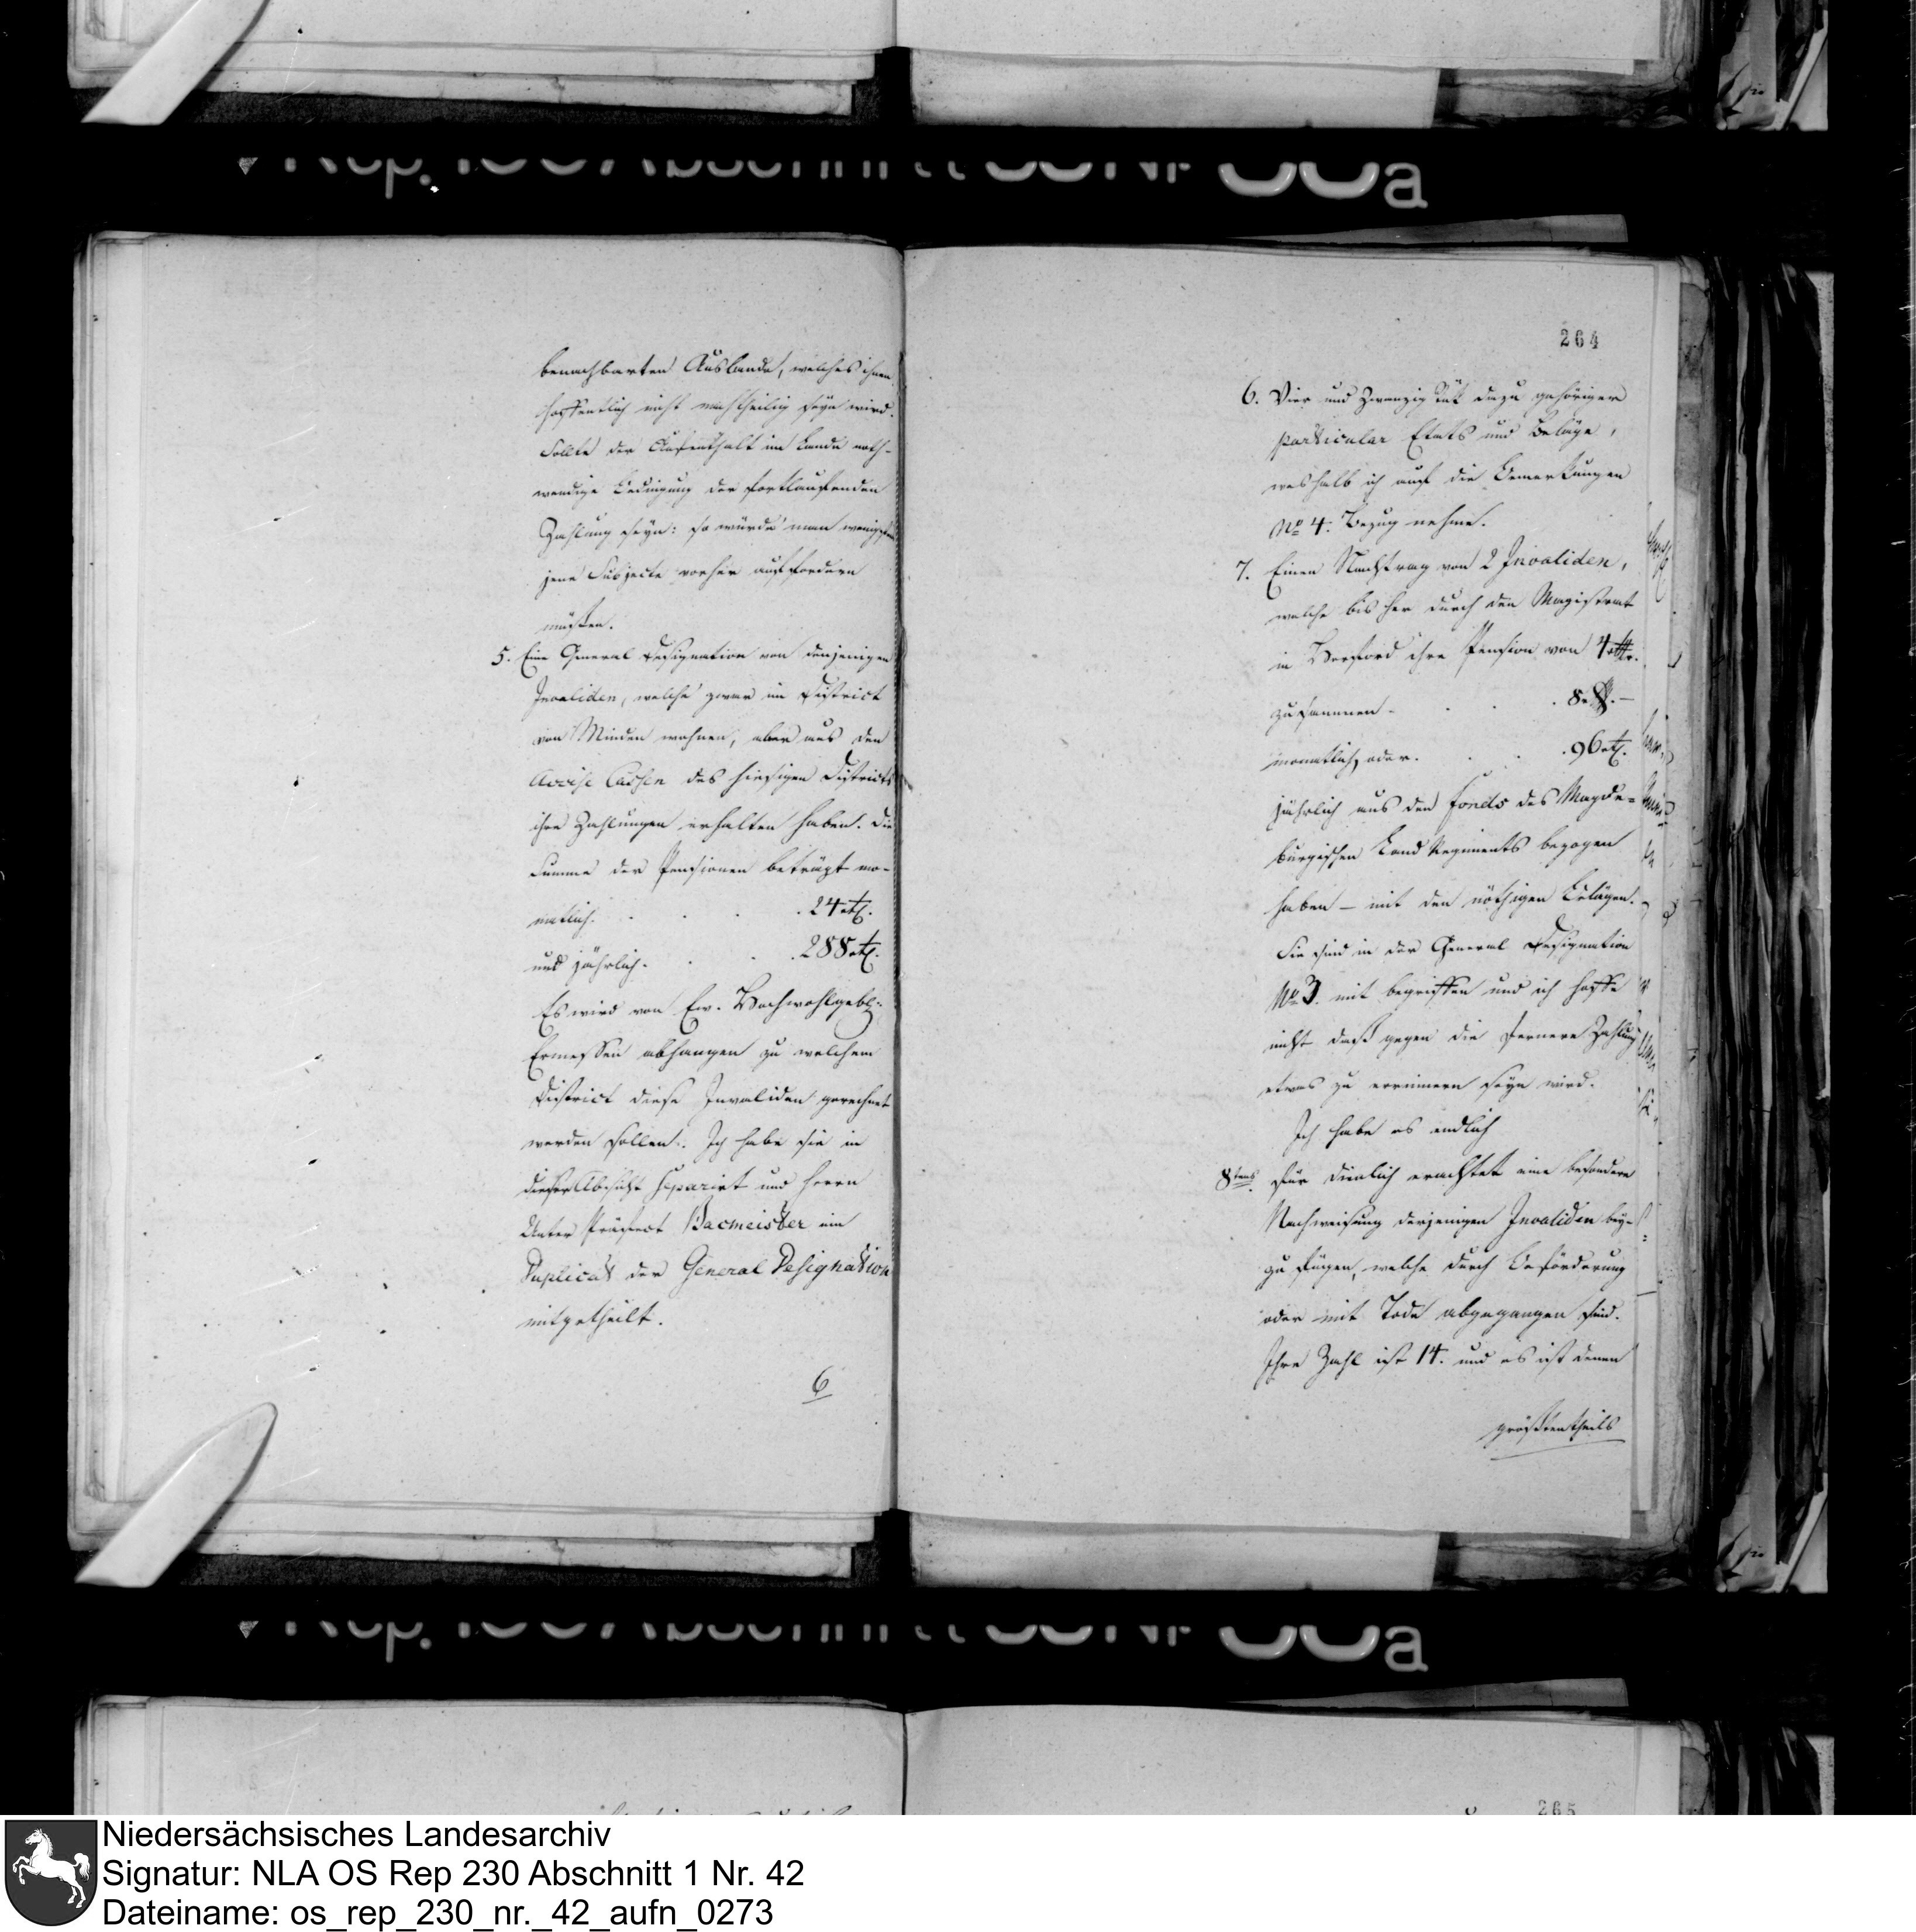 Rep. 100 Abschnitt
a
benachbarten Auslande, welches ihnen
hoffentlich nicht nachtheilig seyn wird.
Sollte der Aufenthalt im Lande noth-
wendige Bedingung der fortlaufenden
Zahlung seyn: so würde man wenigstens
jene Subjecte vorher auffordern
müßen.
5. Eine General Designation von denjenigen
Invaliden, welche zwar im District
von Minden wohnen, aber aus den
Accise Cassen des hiesigen Districts
ihre Zahlungen erhalten haben. Die
Summe der Pensionen beträgt mo-
natlich. . . . 24 rtl.
und jährlich. . . . 288 rtl.
Es wird von Ew. Hochwohlgebl.
Ermessen abhangen zu welchem
District diese Invaliden gerechnet
werden sollen. Ich habe sie in
dieser Absicht separirt und Herrn
Unter Präfect Bacmeister ein
Duplicat der General Designation
mitgetheilt.
6
264
6. Vier und Zwanzig Stük dazu gehöriger
particular Etats und Beläge,
weshalb ich auf die Bemerkungen
No 4. Bezug nehme.
7. Einen Nachtrag von 2 Invaliden,
welche bis her durch den Magistrat
in Herford ihre Pension von 4 rtlr.
zusammen . . . 8 rtl. —
monatlich, oder . . . 96 rtl.
jährlich aus den fonds des Magde-
burgischen Land Regiments bezogen
haben — mit den nöthigen Belägen.
Sie sind in der General Designation
No 3. mit begriffen und ich hoffe
nicht daß gegen die fernere Zahlung
etwas zu erinnern seyn wird.
Ich habe es endlich
8tens für dienlich erachtet eine besondere
Nachweisung derjenigen Invaliden bey-
zu fügen, welche durch Beförderung
oder mit Tode abgegangen sind.
Ihre Zahl ist 14. und es ist denen
größtentheils
Rep. 100 Abschnitt
a
265
Niedersächsisches Landesarchiv
Signatur: NLA OS Rep 230 Abschnitt 1 Nr. 42
Dateiname: os_rep_230_nr._42_aufn_0273